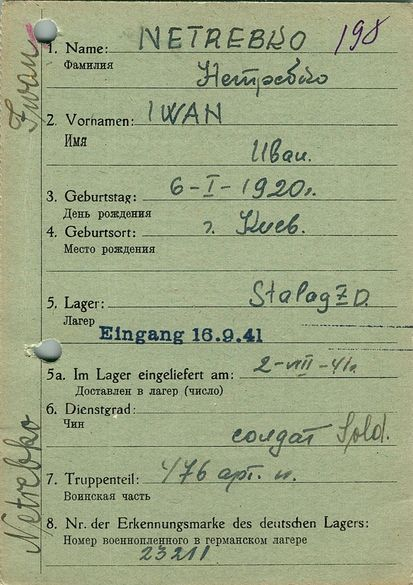 1. Name: NETREBKO 198
Фамилия
Нетребко
2. Vornamen: IWAN
Имя
Иван.
3. Geburtstag: 6-I-1920г.
День рождения
4. Geburtsort: г. Киев.
Место рождения
5. Lager: Stalag
Лагерь
Eingang 16.9.41
5a. Im Lager eingeliefert am: 2-VIII-41г.
Доставлен в лагерь (число)
6. Dienstgrad:
Чин
солдат Sold.
7. Truppenteil: 476 арт. п.
Воинская часть
8. Nr. der Erkennungsmarke des deutschen Lagers:
Номер военнопленного в германском лагере
23211
Iwan
Netrebko